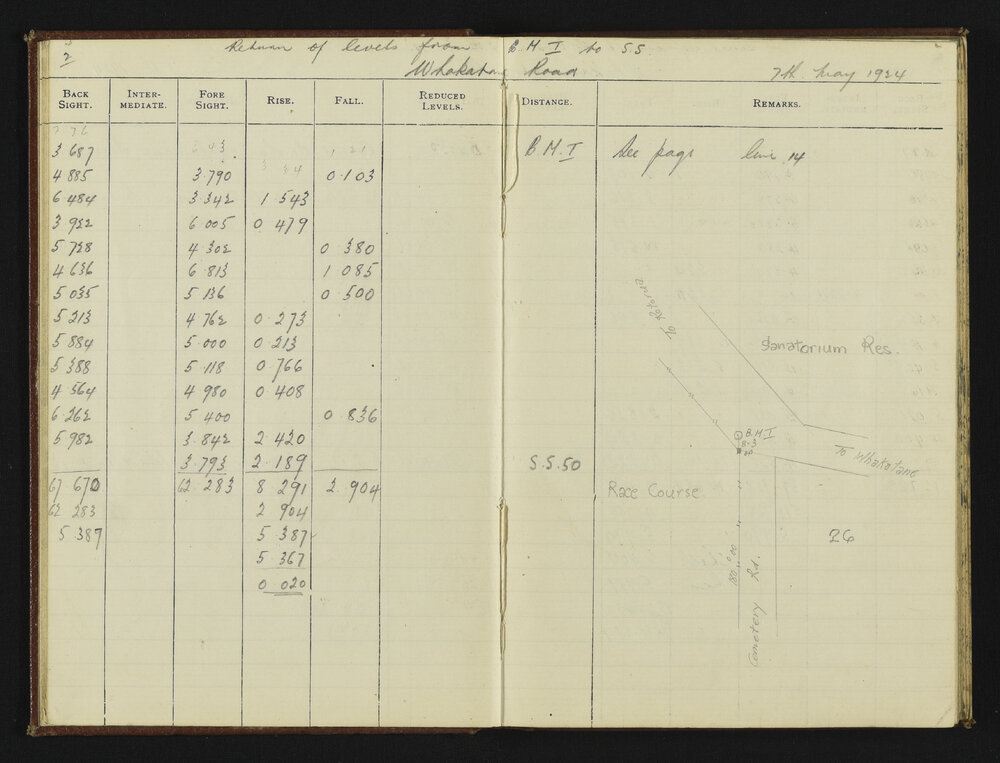 2 Return of levels from B.M I to S.S.
Whakatane Road 7th May 1924
BACK SIGHT. INTER-MEDIATE. FORE SIGHT. RISE. FALL. REDUCED LEVELS. DISTANCE. REMARKS.
3 687 B.M.I See page line 14
4 885 3 790 0.103
6 484 3 342 1 543
3 922 6 005 0 479
5 728 4 302 0 380
4 636 6 813 1 085
5 035 5 136 0 500
5 213 4 762 0.273
5 884 5.000 0.213
5 388 5 118 0.766
4 564 4 980 0.408
6 262 5 400 0.836
5 982 3.842 2.420
3.793 2.189 S.S.50
67 670 62.283 8 291 2.904
62 283 2 904
5.389 5 387
5 367
0 020
To Rotorua
Sanatorium Res.
B.M.I
To Whakatane
Race Course
26
Cemetery Rd.